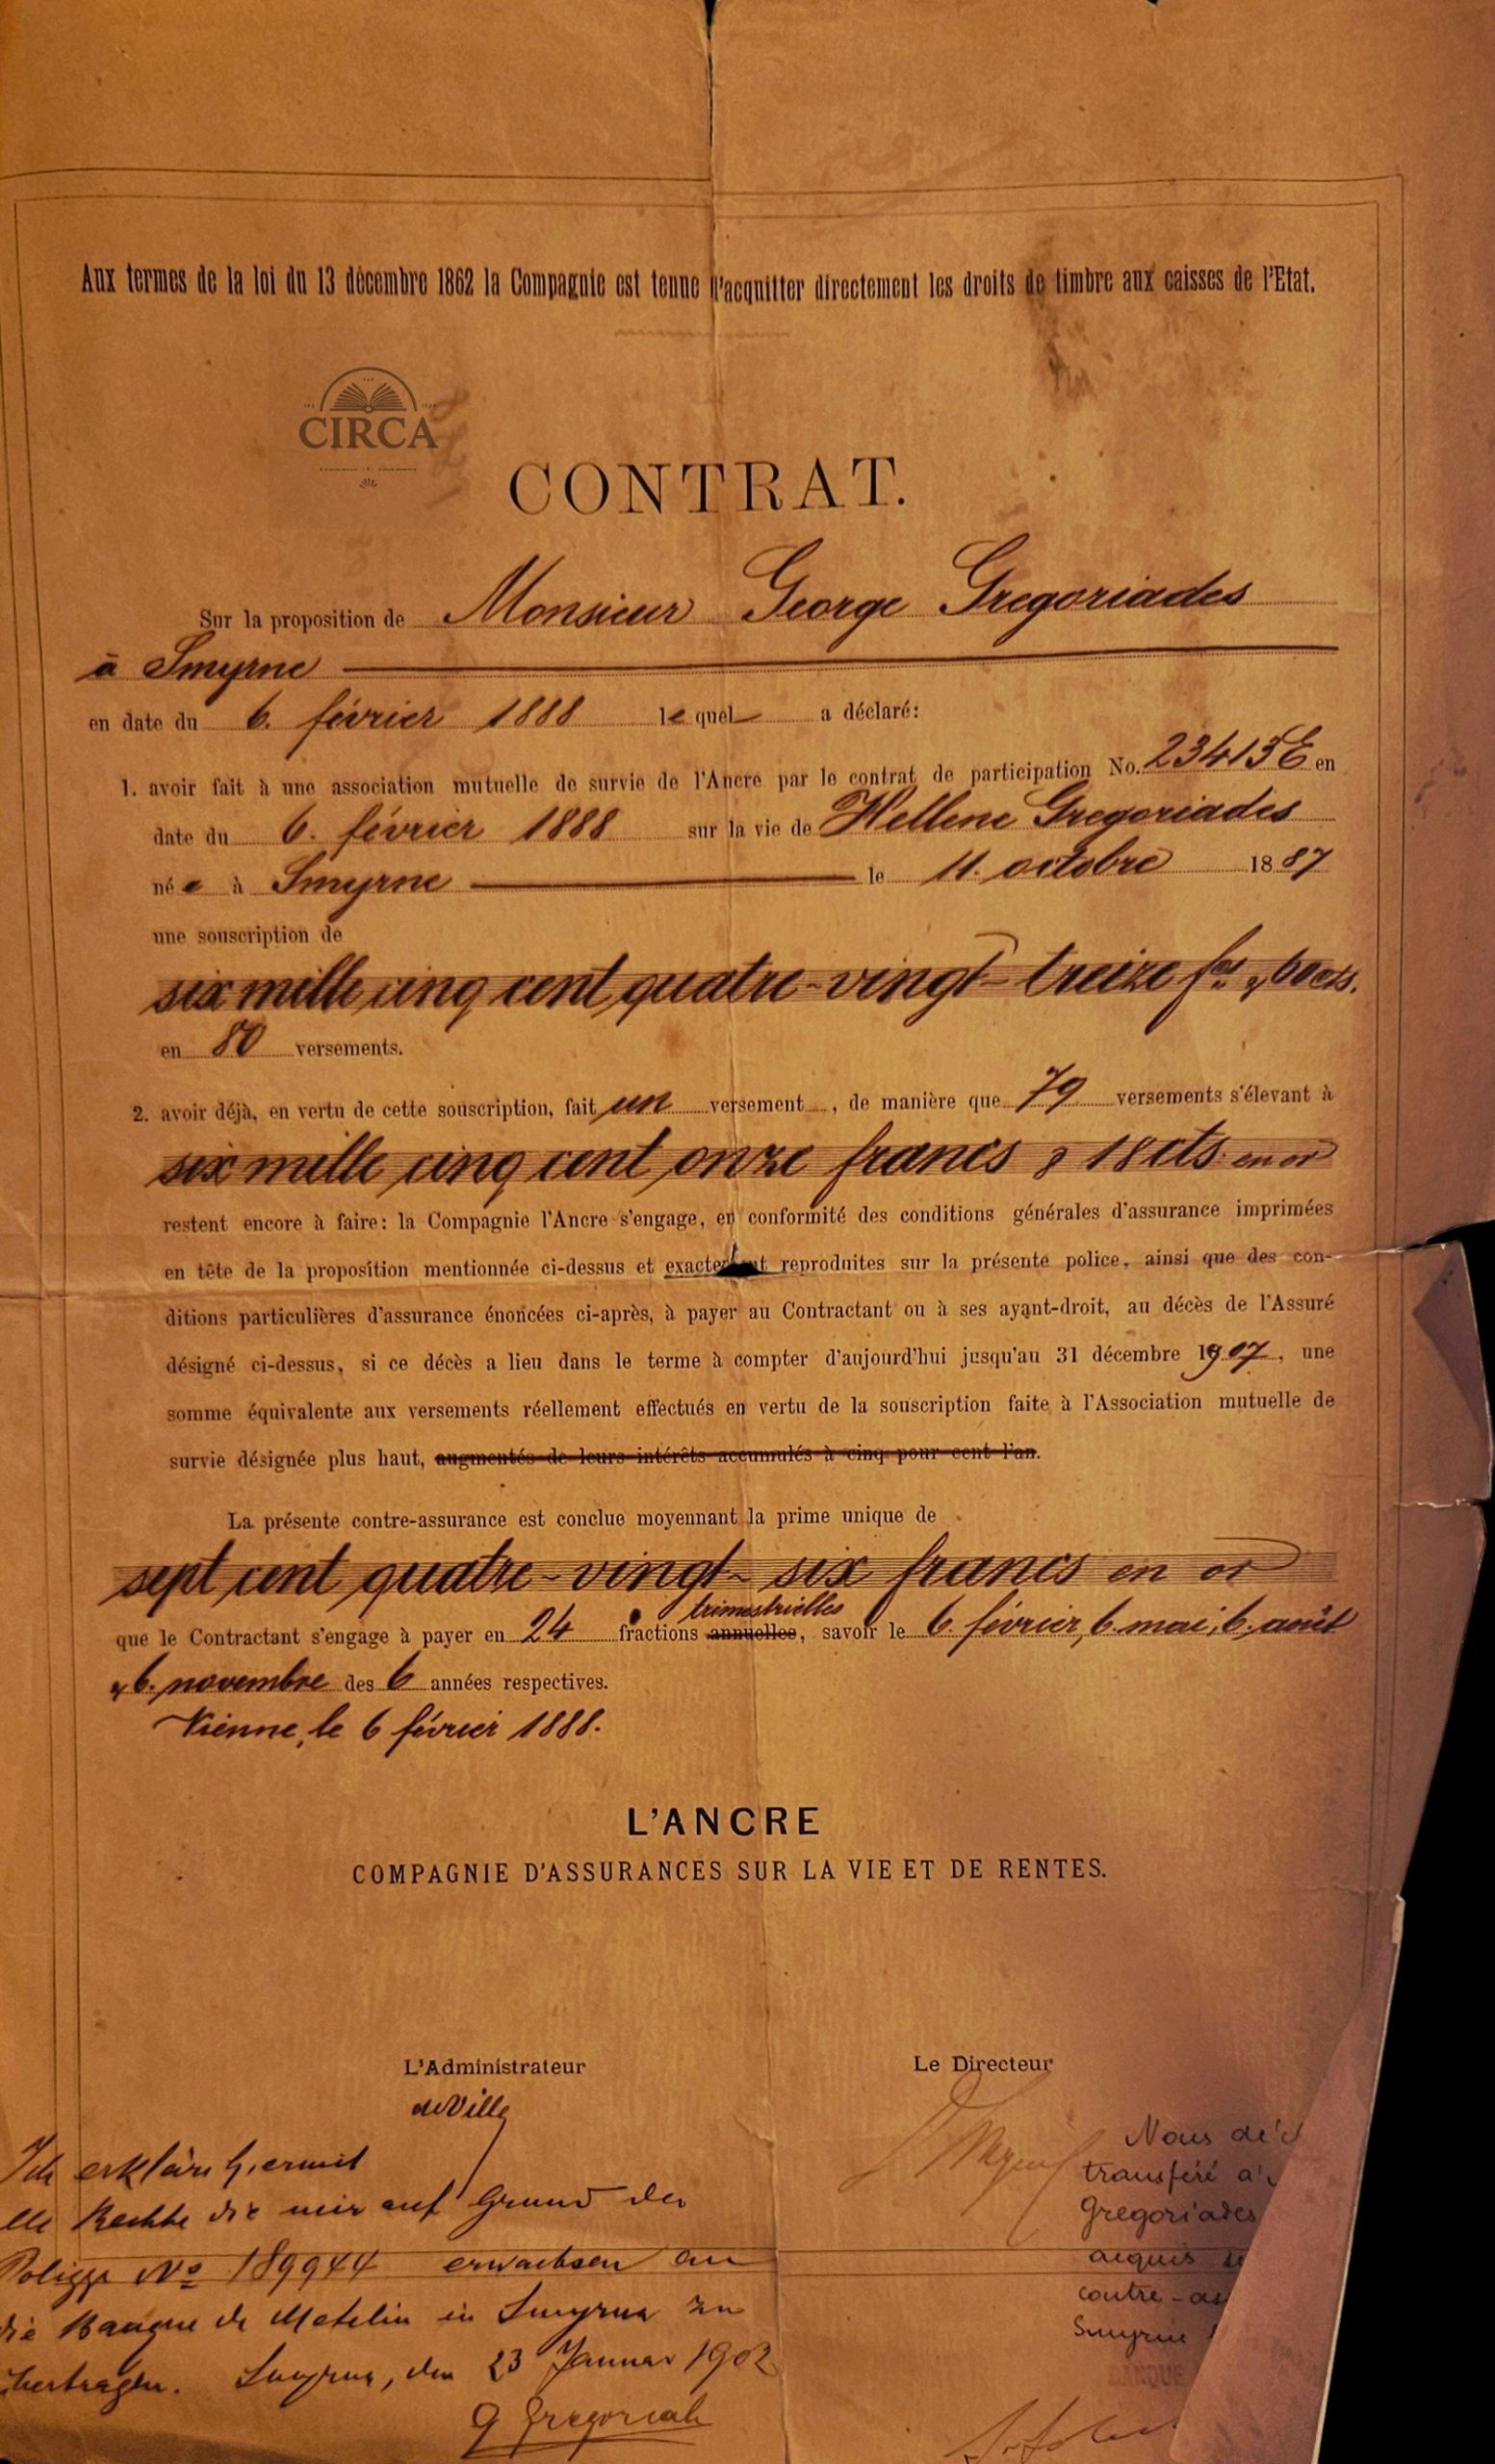 Aux termes de la loi du 13 décembre 1862 la Compagnie est tenue d'acquitter directement les droits de timbre aux caisses de l'Etat.
CIRCA
CONTRAT.
Sur la proposition de Monsieur George Gregoriades
à Smyrne
en date du 6. février 1888 le quel a déclaré:
1. avoir fait à une association mutuelle de survie de l'Ancre par le contrat de participation No. 23413 E en
date du 6. février 1888 sur la vie de Hellene Gregoriades
née à Smyrne le 11. octobre 1887
une souscription de
six mille cinq cent quatre-vingt-treize fcs & 60 cts.
en 80 versements.
2. avoir déjà, en vertu de cette souscription, fait un versement, de manière que 79 versements s'élevant à
six mille cinq cent onze francs & 18 cts. en or
restent encore à faire: la Compagnie l'Ancre s'engage, en conformité des conditions générales d'assurance imprimées
en tête de la proposition mentionnée ci-dessus et exactement reproduites sur la présente police, ainsi que des con-
ditions particulières d'assurance énoncées ci-après, à payer au Contractant ou à ses ayant-droit, au décès de l'Assuré
désigné ci-dessus, si ce décès a lieu dans le terme à compter d'aujourd'hui jusqu'au 31 décembre 1907, une
somme équivalente aux versements réellement effectués en vertu de la souscription faite à l'Association mutuelle de
survie désignée plus haut, augmentés de leurs intérêts accumulés à cinq pour cent l'an.
La présente contre-assurance est conclue moyennant la prime unique de
sept cent quatre-vingt-six francs en or
trimestrielles
que le Contractant s'engage à payer en 24 fractions annuelles, savoir le 6 février, 6. mai, 6. août
& 6. novembre des 6 années respectives.
Vienne, le 6 février 1888.
L'ANCRE
COMPAGNIE D'ASSURANCES SUR LA VIE ET DE RENTES.
L'Administrateur
Le Directeur
deVille
Ich erkläre hiermit
lle Rechte die mir auf Grund der
Polizze No 189944 erwachsen an
die Banque de Metelin in Smyrna zu
übertragen. Smyrna, den 23 Januar 1902
Nous
transféré
Gregoriades
acquis
contre-as
Smyrne
BANQUE